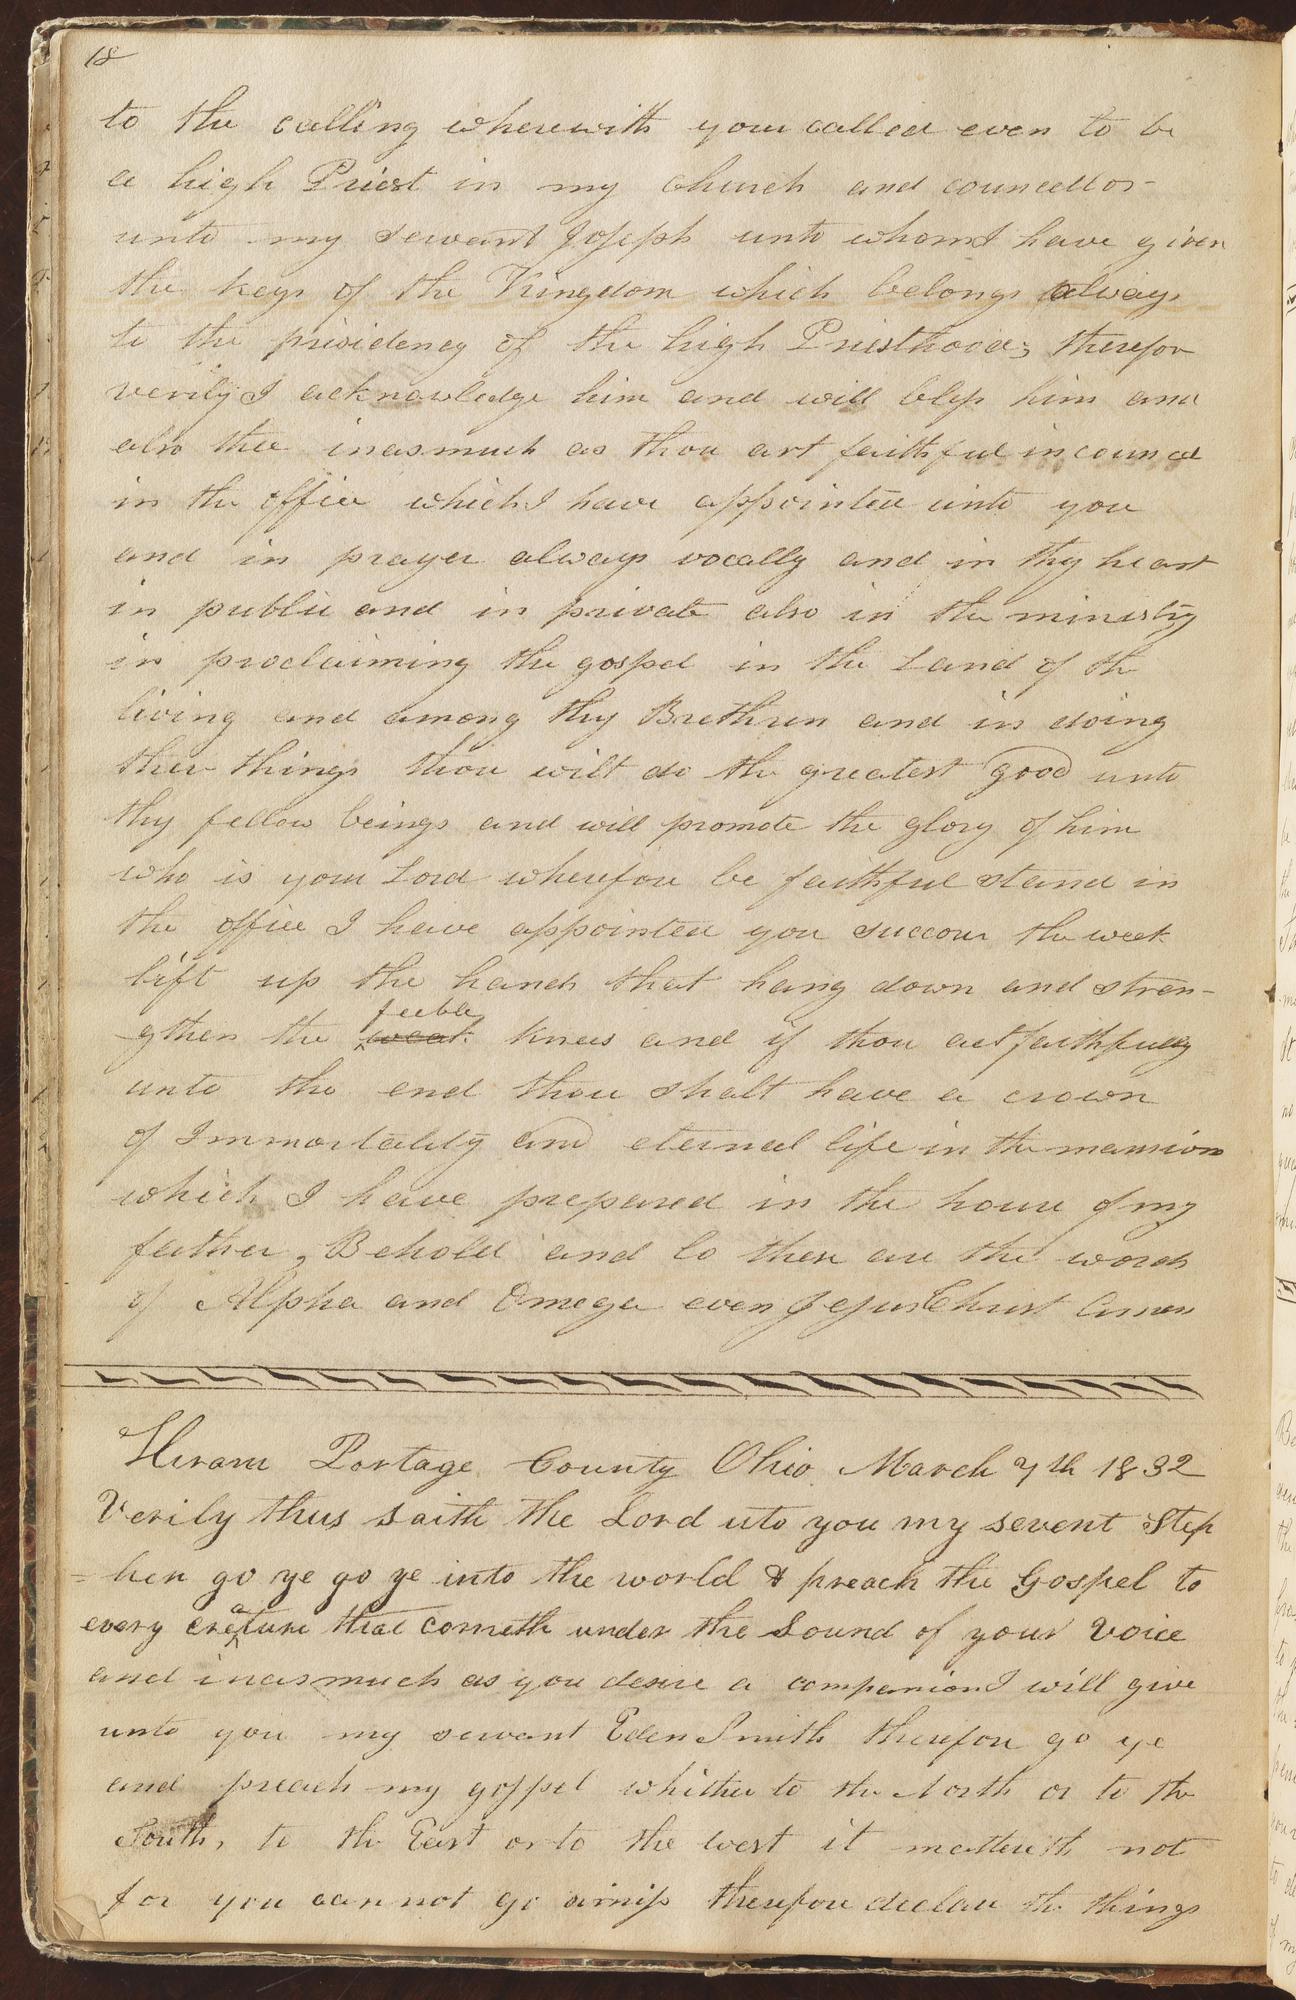 18
to the calling wherewith your called even to be
a high Priest in my church and councellor
unto my servant Joseph unto whom I have given
the keys of the Kingdom which belongs always
to the prisidency of the high Priesthood; therefor
verily I acknowledge him and will bless him and
also thee inasmuch as thou art faithful in councel
in the office which I have appointed unto you
and in prayer always vocally and in thy heart
in public and in private also in the ministry
in proclaiming the gospel in the Land of the
living and among thy Brethren and in doing
these things thou wilt do the greatest good unto
thy fellow beings and will promote the glory of him
who is your Lord wherefore be faithful stand in
the office I have appointed you succour the week
lift up the hands that hang down and stren-
feeble
-gthen the weak knees and if thou art faithfully
unto the end thou shalt have a crown
of Immortality and eternal life in the mansion
which I have prepared in the house of my
father, Behold and lo these are the words
of Alpha and Omega even Jesus Christ Amen
Hiram Portage County Ohio March 7th 1832
Verily thus saith the Lord uto you my sevent Step
=hen go ye go ye into the world & preach the Gospel to
every creature that cometh under the Sound of your Voice
and inasmuch as you desire a companion I will give
unto you my servant Eden Smith therefore go ye
and preach my gospel whither to the North or to the
South, to the East or to the west it mattereth not
for you can not go amiss therefore declare the things